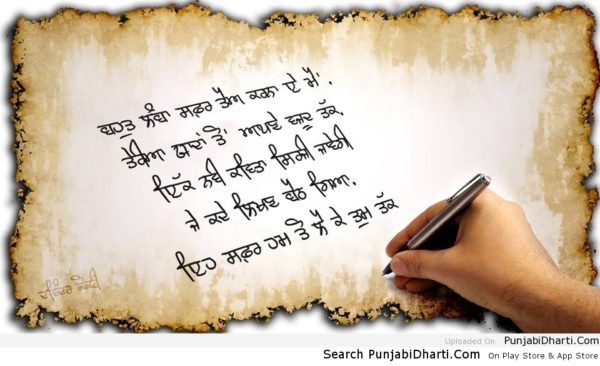 ਬਹੁਤ ਲੰਬਾ ਸਫ਼ਰ ਤੈਅ ਕਰਨਾ ਏ ਮੈਂ,
ਤੇਰਿਆ ਯਾਦਾਂ ਤੋਂ ਆਪਣੇ ਤੱਕ
ਇੱਕ ਨਵੀ ਕਵਿਤਾ ਲਿਖੀ ਜਾਵੇਗੀ
ਜੇ ਕਦੇ ਲਿਖਣ ਬੈਠ ਗਿਆ,
ਇਹ ਸਫ਼ਰ ਹਮ ਤੋਂ ਲੈ ਕੇ ਤੁਮ ਤੱਕ
Uploaded On PunjabiDharti.Com
Search PunjabiDharti.Com On Play Store & App Store